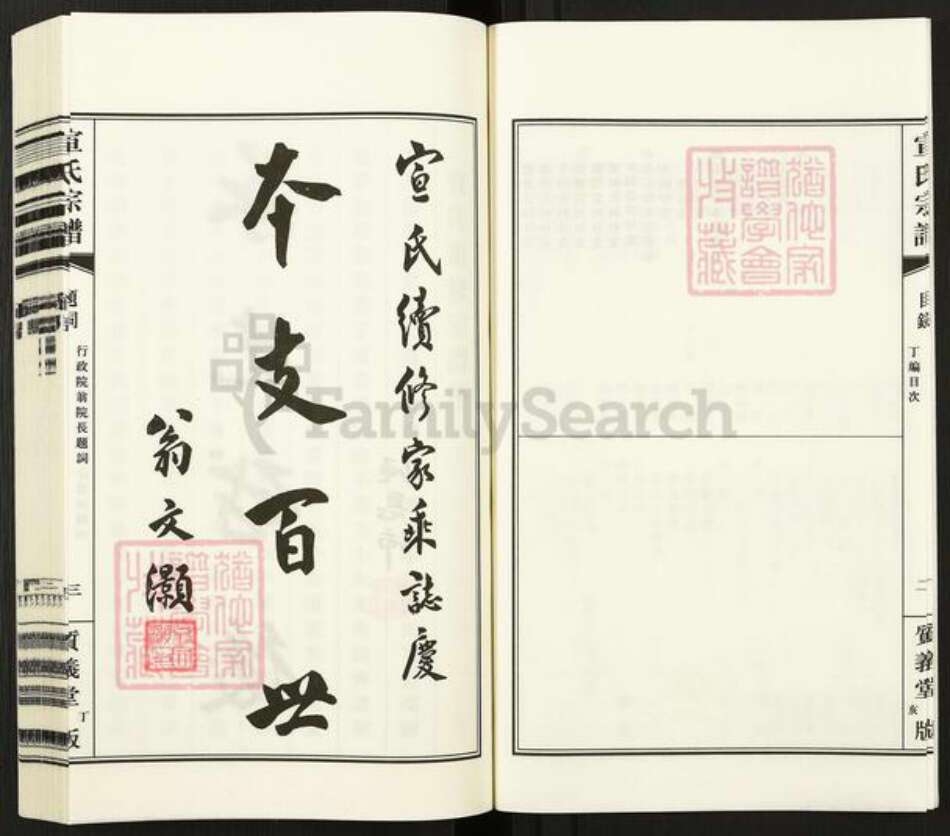 宣氏宗譜
目錄
丁編目次
二
質義堂
亥
版
猶他家
譜學會
收藏
宣氏續修家乘誌慶
本支百世
翁文灝
猶他家
譜學會
收藏
宣氏宗譜
題詞
行政院翁院長題詞
三
質義堂
丁
版
FamilySearch